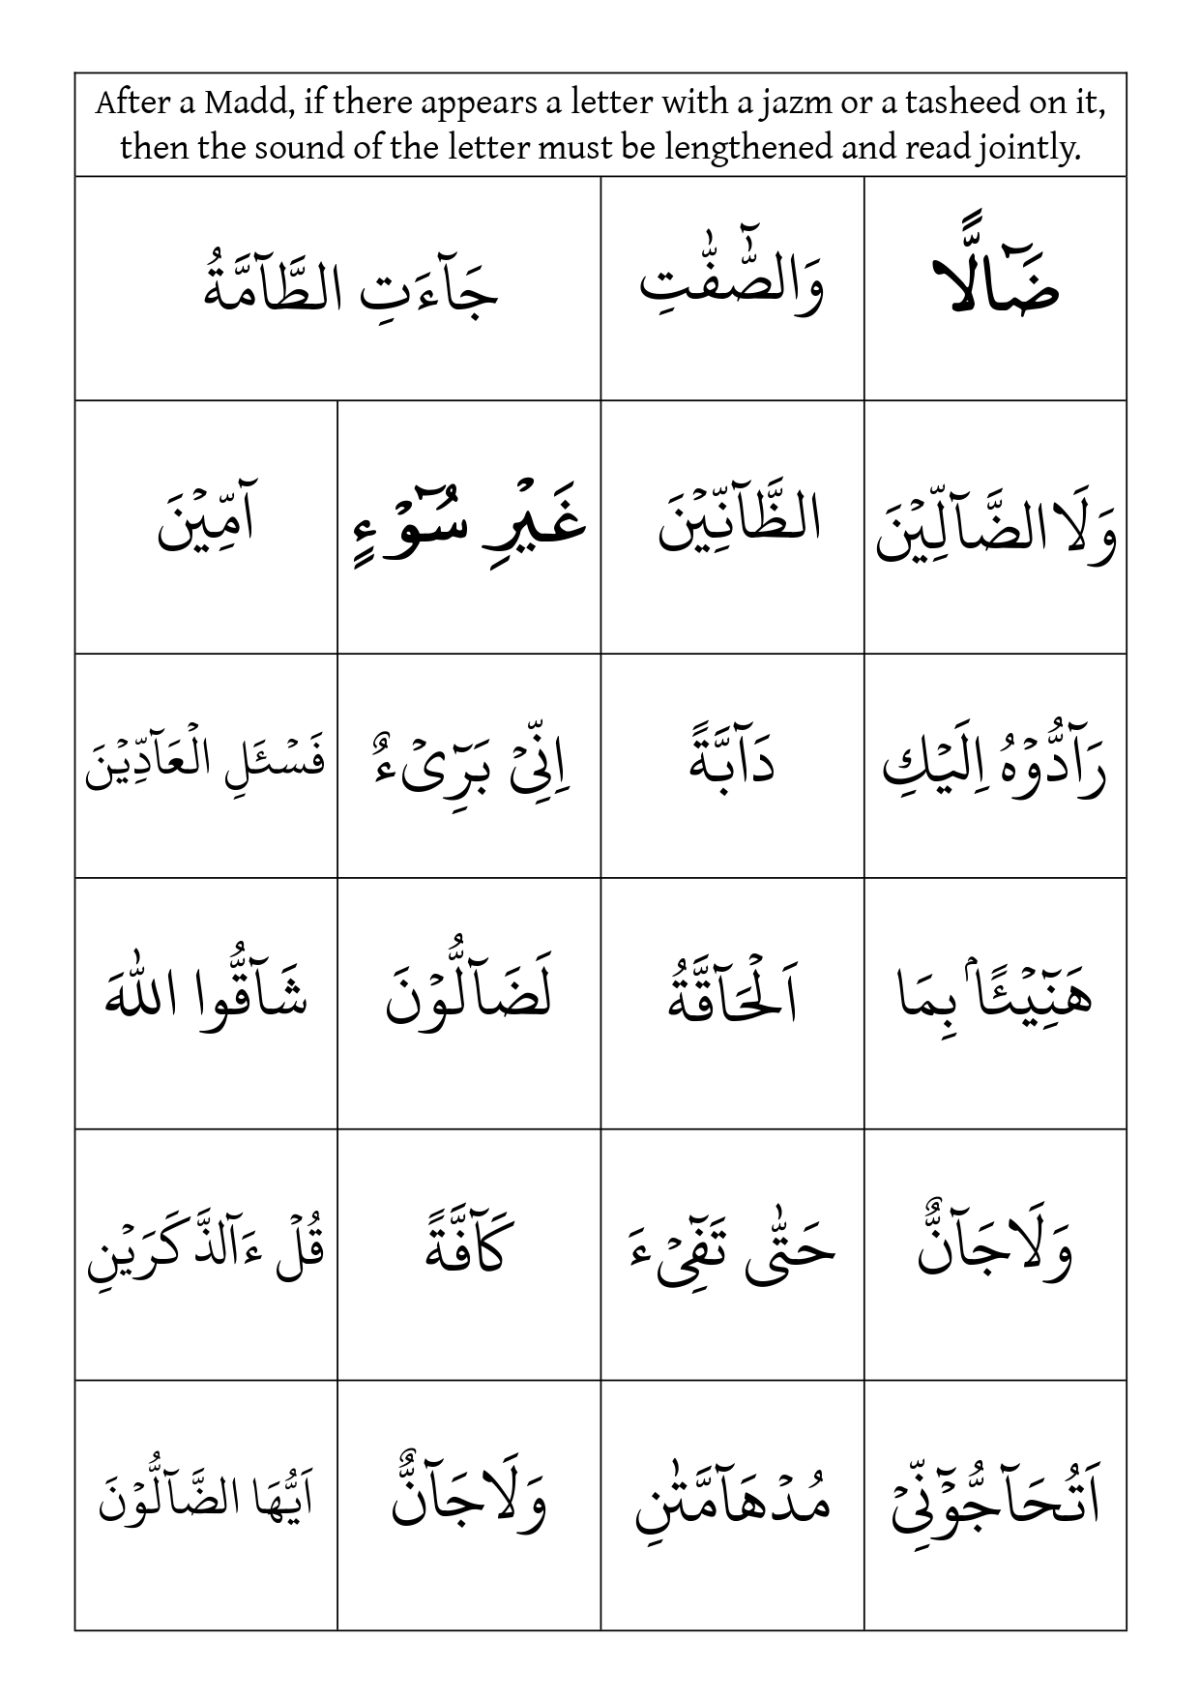 After a Madd, if there appears a letter with a jazm or a tasheed on it,
then the sound of the letter must be lengthened and read jointly.
ضَآلًّا
وَالصّٰٓفّٰتِ
جَآءَتِ الطَّآمَّةُ
وَلَا الضَّآلِّيْنَ
الظَّآنِّيْنَ
غَيْرِ سُوْٓءٍ
آمِّيْنَ
رَآدُّوْهُ اِلَيْكِ
دَآبَّةً
اِنِّيْ بَرِٓىْءٌ
فَسْئَلِ الْعَآدِّيْنَ
هَنِٓيْئًاۢ بِمَا
اَلْحَآقَّةُ
لَضَآلُّوْنَ
شَآقُّوا اللّٰهَ
وَلَا جَآنٌّ
حَتّٰى تَفِٓىْءَ
كَآفَّةً
قُلْ ءَآلذَّكَرَيْنِ
اَتُحَآجُّوْٓنِّيْ
مُدْهَآمَّتٰنِ
وَلَا جَآنٌّ
اَيُّهَا الضَّآلُّوْنَ